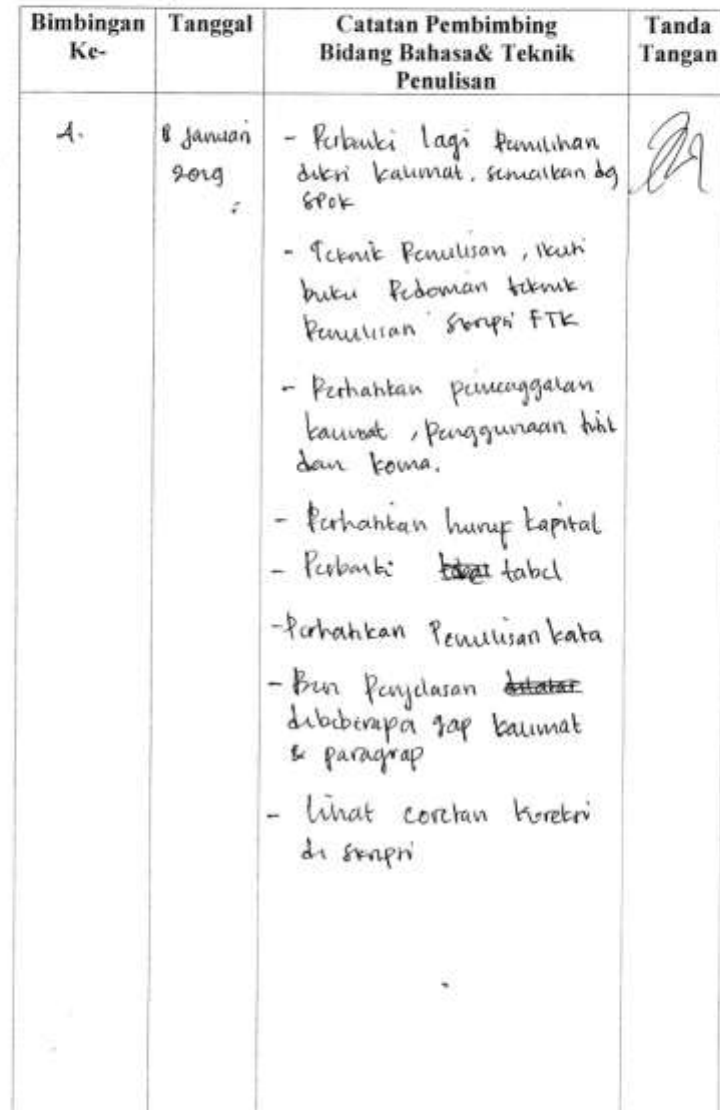 Bimbingan Ke-
Tanggal
Catatan Pembimbing
Bidang Bahasa& Teknik
Penulisan
Tanda
Tangan
1.
8 Januari
2019
- Perbaiki lagi Pemilihan
diksi kalimat. sesuaikan dg
SPOK
- Teknik Penulisan, ikuti
buku Pedoman teknik
Penulisan skripsi FTK
- Perhatikan pemenggalan
kalimat, penggunaan titik
dan koma.
- Perhatikan huruf kapital
- Perbaiki tabel
- Perhatikan Penulisan kata
- Beri Penjelasan
dibeberapa gap kalimat
& paragrap
- lihat coretan koreksi
di skripsi